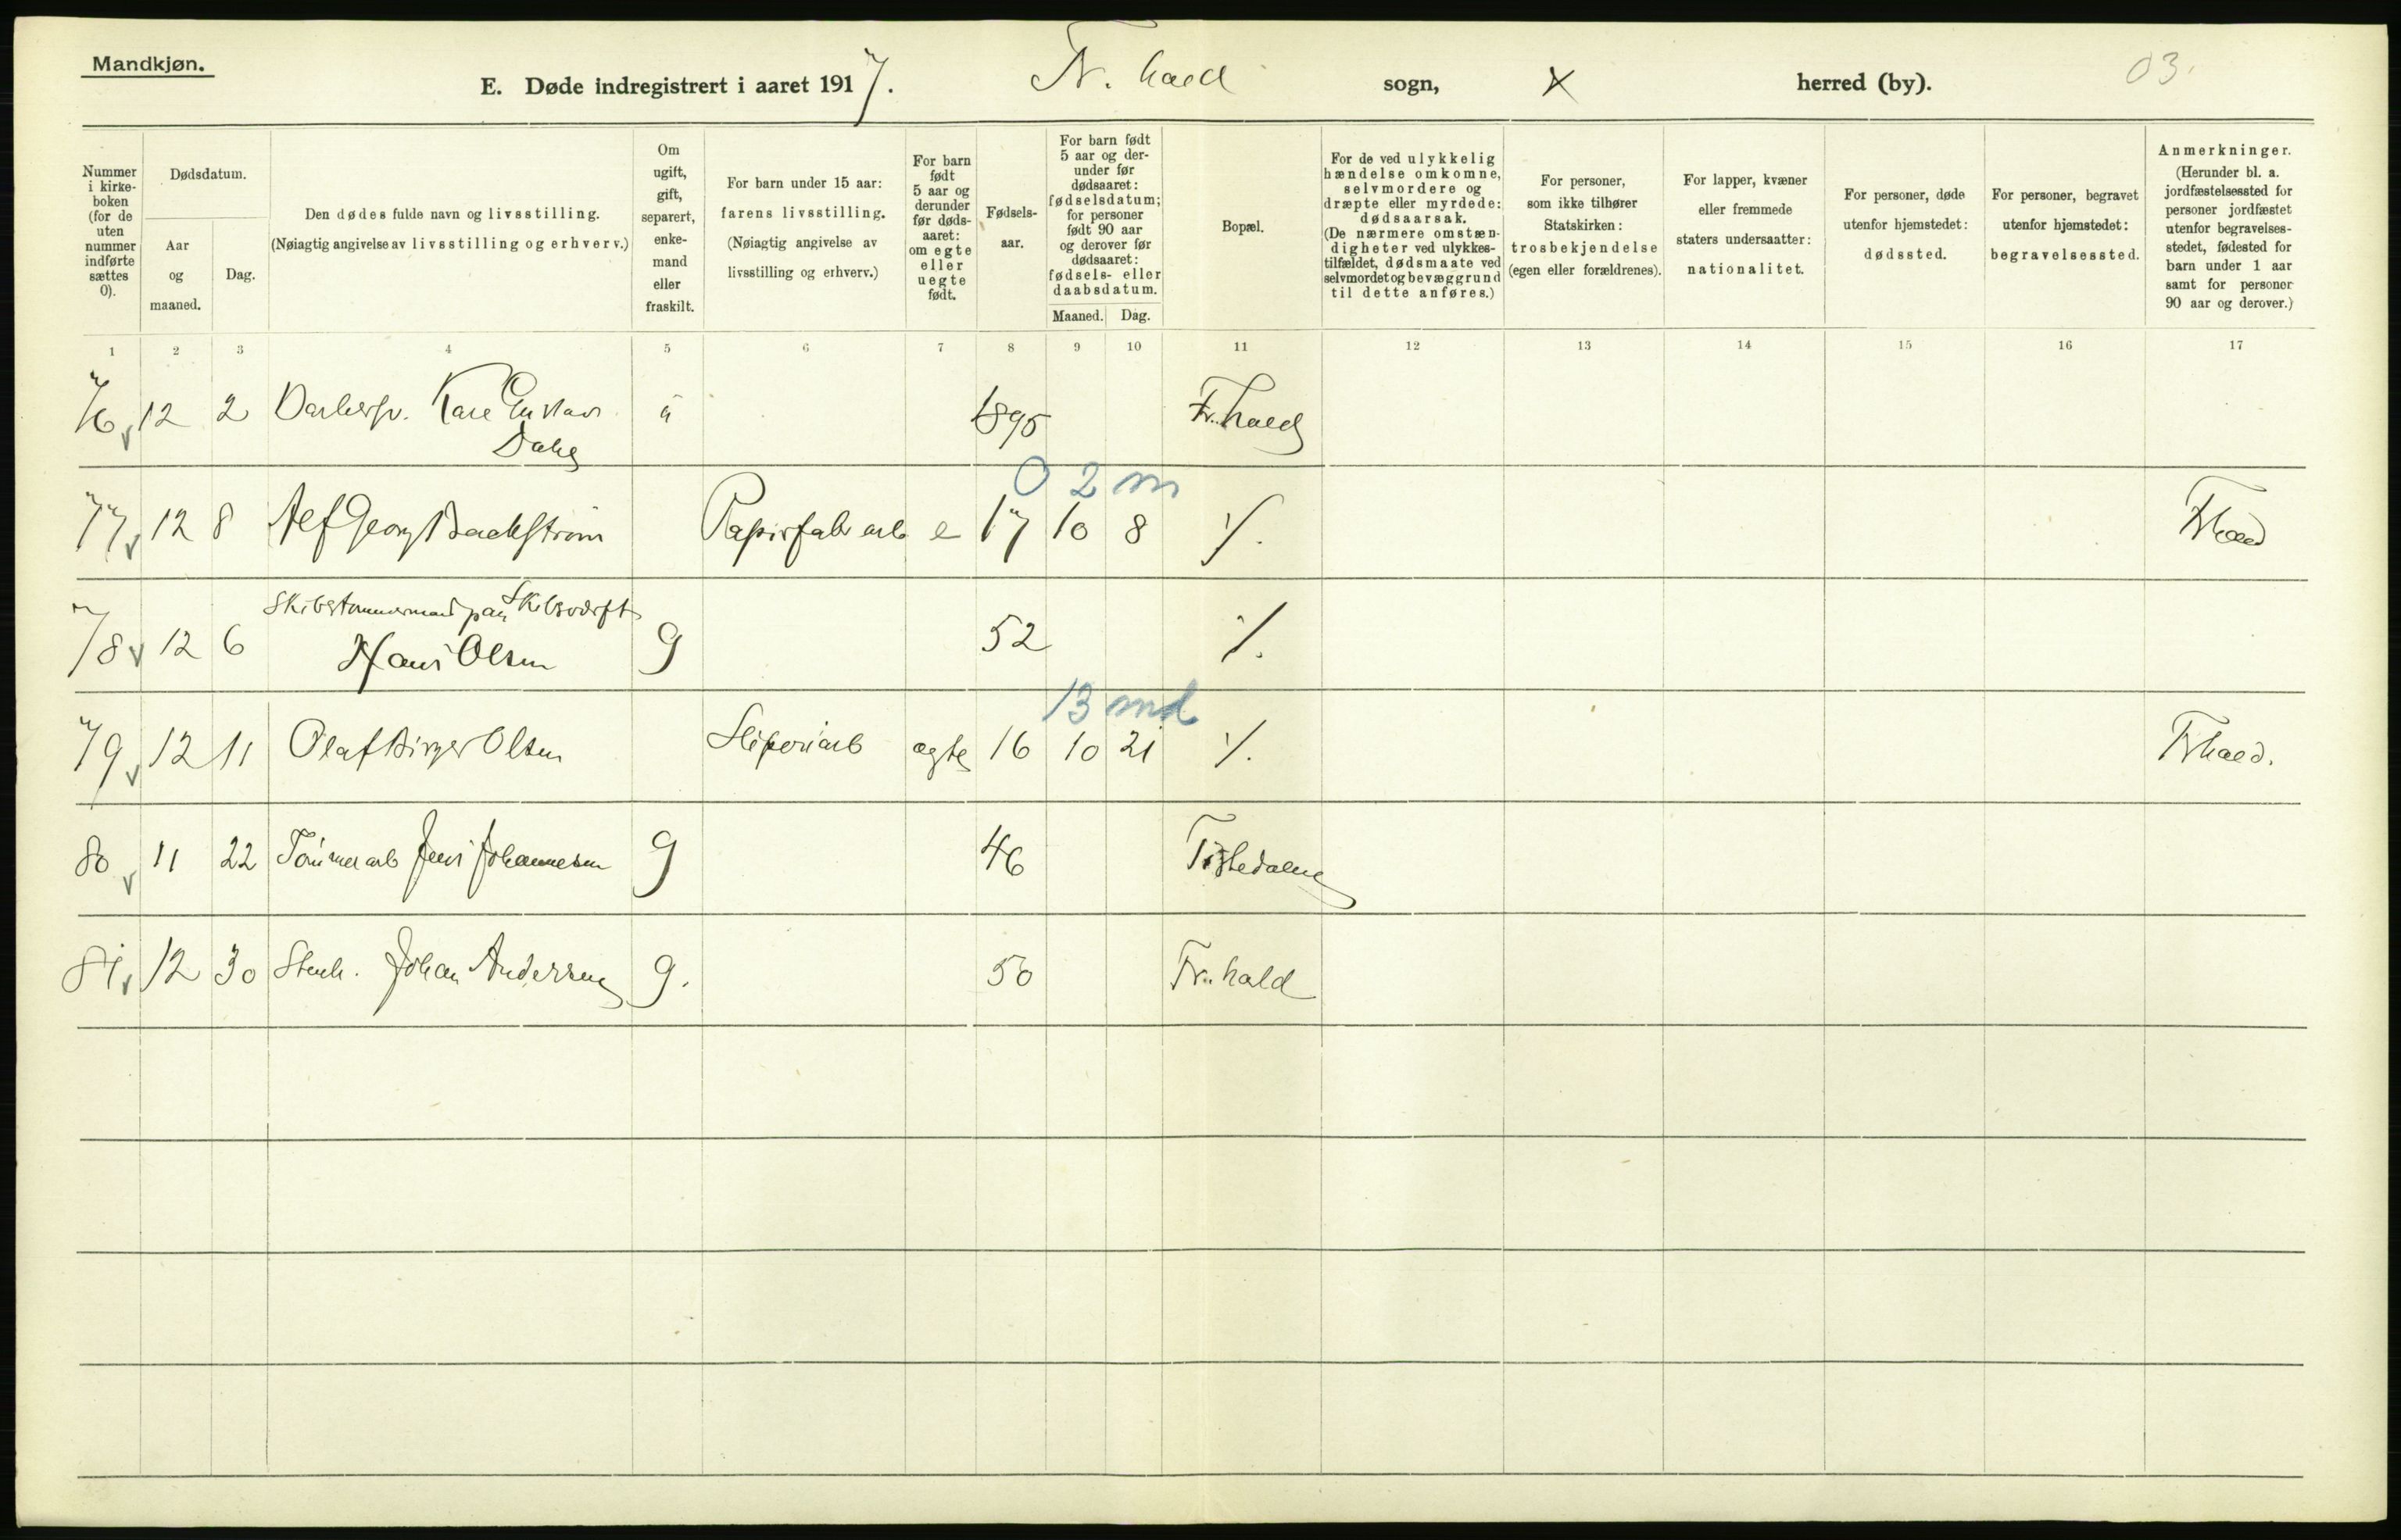 Mandkjøn.
E. Døde indregistrert i aaret 1917. Fr. hald sogn, x herred (by). 03.
Nummer i kirke-boken (for de uten nummer indførte sættes 0).
Dødsdatum.
Aar og maaned.
Dag.
Den dødes fulde navn og livsstilling.
(Nøiagtig angivelse av livsstilling og erhverv.)
Om ugift, gift, separert, enke-mand eller fraskilt.
For barn under 15 aar: farens livsstilling. (Nøiagtig angivelse av livsstilling og erhverv.)
For barn født 5 aar og derunder før døds-aaret: om egte eller uegte født.
Fødsels-aar.
For barn født 5 aar og der-under før dødsaaret: fødselsdatum; for personer født 90 aar og derover før dødsaaret: fødsels- eller daabsdatum.
Maaned. Dag.
Bopæl.
For de ved ulykkelig hændelse omkomne, selvmordere og dræpte eller myrdede: dødsaarsak. (De nærmere omstæn-digheter ved ulykkes-tilfældet, dødsmaate ved selvmordet og bevæggrund til dette anføres.)
For personer, som ikke tilhører Statskirken: trosbekjendelse (egen eller forældrenes).
For lapper, kvæner eller fremmede staters undersaatter: nationalitet.
For personer, døde utenfor hjemstedet: dødssted.
For personer, begravet utenfor hjemstedet: begravelsessted.
Anmerkninger. (Herunder bl. a. jordfæstelsessted for personer jordfæstet utenfor begravelses-stedet, fødested for barn under 1 aar samt for personer 90 aar og derover.)
1 2 3 4 5 6 7 8 9 10 11 12 13 14 15 16 17
76 v 12 2 Karl Gustav u 1895 Fr.hald
Dahl
0 2 m
77 v 12 8 Alf Georg Backstrøm Papirfabr arb e 17 10 8 ./. Frhald
Skibstømmermand paa Skibsværft
78 v 12 6 Hans Olsen g 52 ./.
13 md
79 v 12 11 Olaf Birger Olsen Sliperiarb ægte 16 10 21 ./. Frhald.
80 v 11 22 Tømmerarb Jens Johannesen g 46 Tistedalen
81 v 12 30 Stenh. Johan Andersen g. 50 Fr.hald